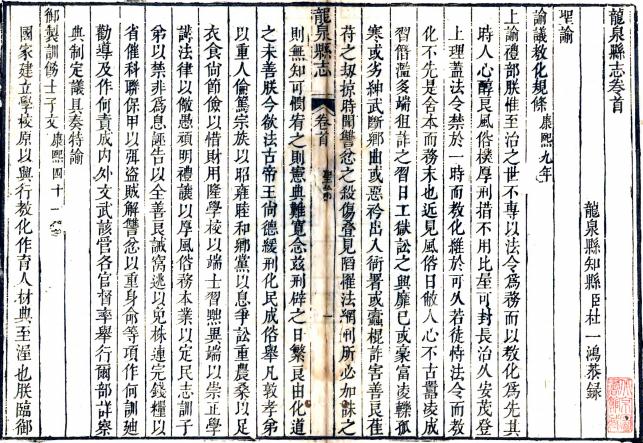 龍泉縣志卷首
龍泉縣知縣臣杜一鴻恭録
聖諭
諭議教化規條康熙九年
上諭禮部朕惟至治之世不專以法令為務而以教化為先其
時人心醇良風俗樸厚刑措不用比屋可封長治久安茂登
上理蓋法令禁於一時而教化維於可久若徒恃法令而教
化不先是舍本而務末也近見風俗日敝人心不古囂凌成
習僭濫多端狙詐之習日工獄訟之興靡已或豪富凌轢孤
寒或劣紳武斷鄉曲或惡衿出入衙署或蠹棍詐害善良萑
苻之刼掠時聞讐忿之殺傷疊見陷罹法網刑所必加誅之
則無知可憫宥之則憲典難寬念兹刑辟之日繁良由化道
之未善朕今欲法古帝王尚德緩刑化民成俗舉凡敦孝弟
以重人倫篤宗族以昭雍睦和鄉黨以息爭訟重農桑以足
衣食尚節儉以惜財用隆學校以端士習黜異端以崇正學
講法律以儆愚頑明禮讓以厚風俗務本業以定民志訓子
弟以禁非為息誣告以全善良誡窩逃以免株連完錢糧以
省催科聯保甲以弭盗賊解讐忿以重身命等項作何訓廸
勸導及作何責成内外文武該管各官督率舉行爾部詳察
典制定議具奏特諭
御製訓飭士子文康熙四十一年
國家建立學校原以興行教化作育人材典至渥也朕臨御
龍泉縣志
卷首
一